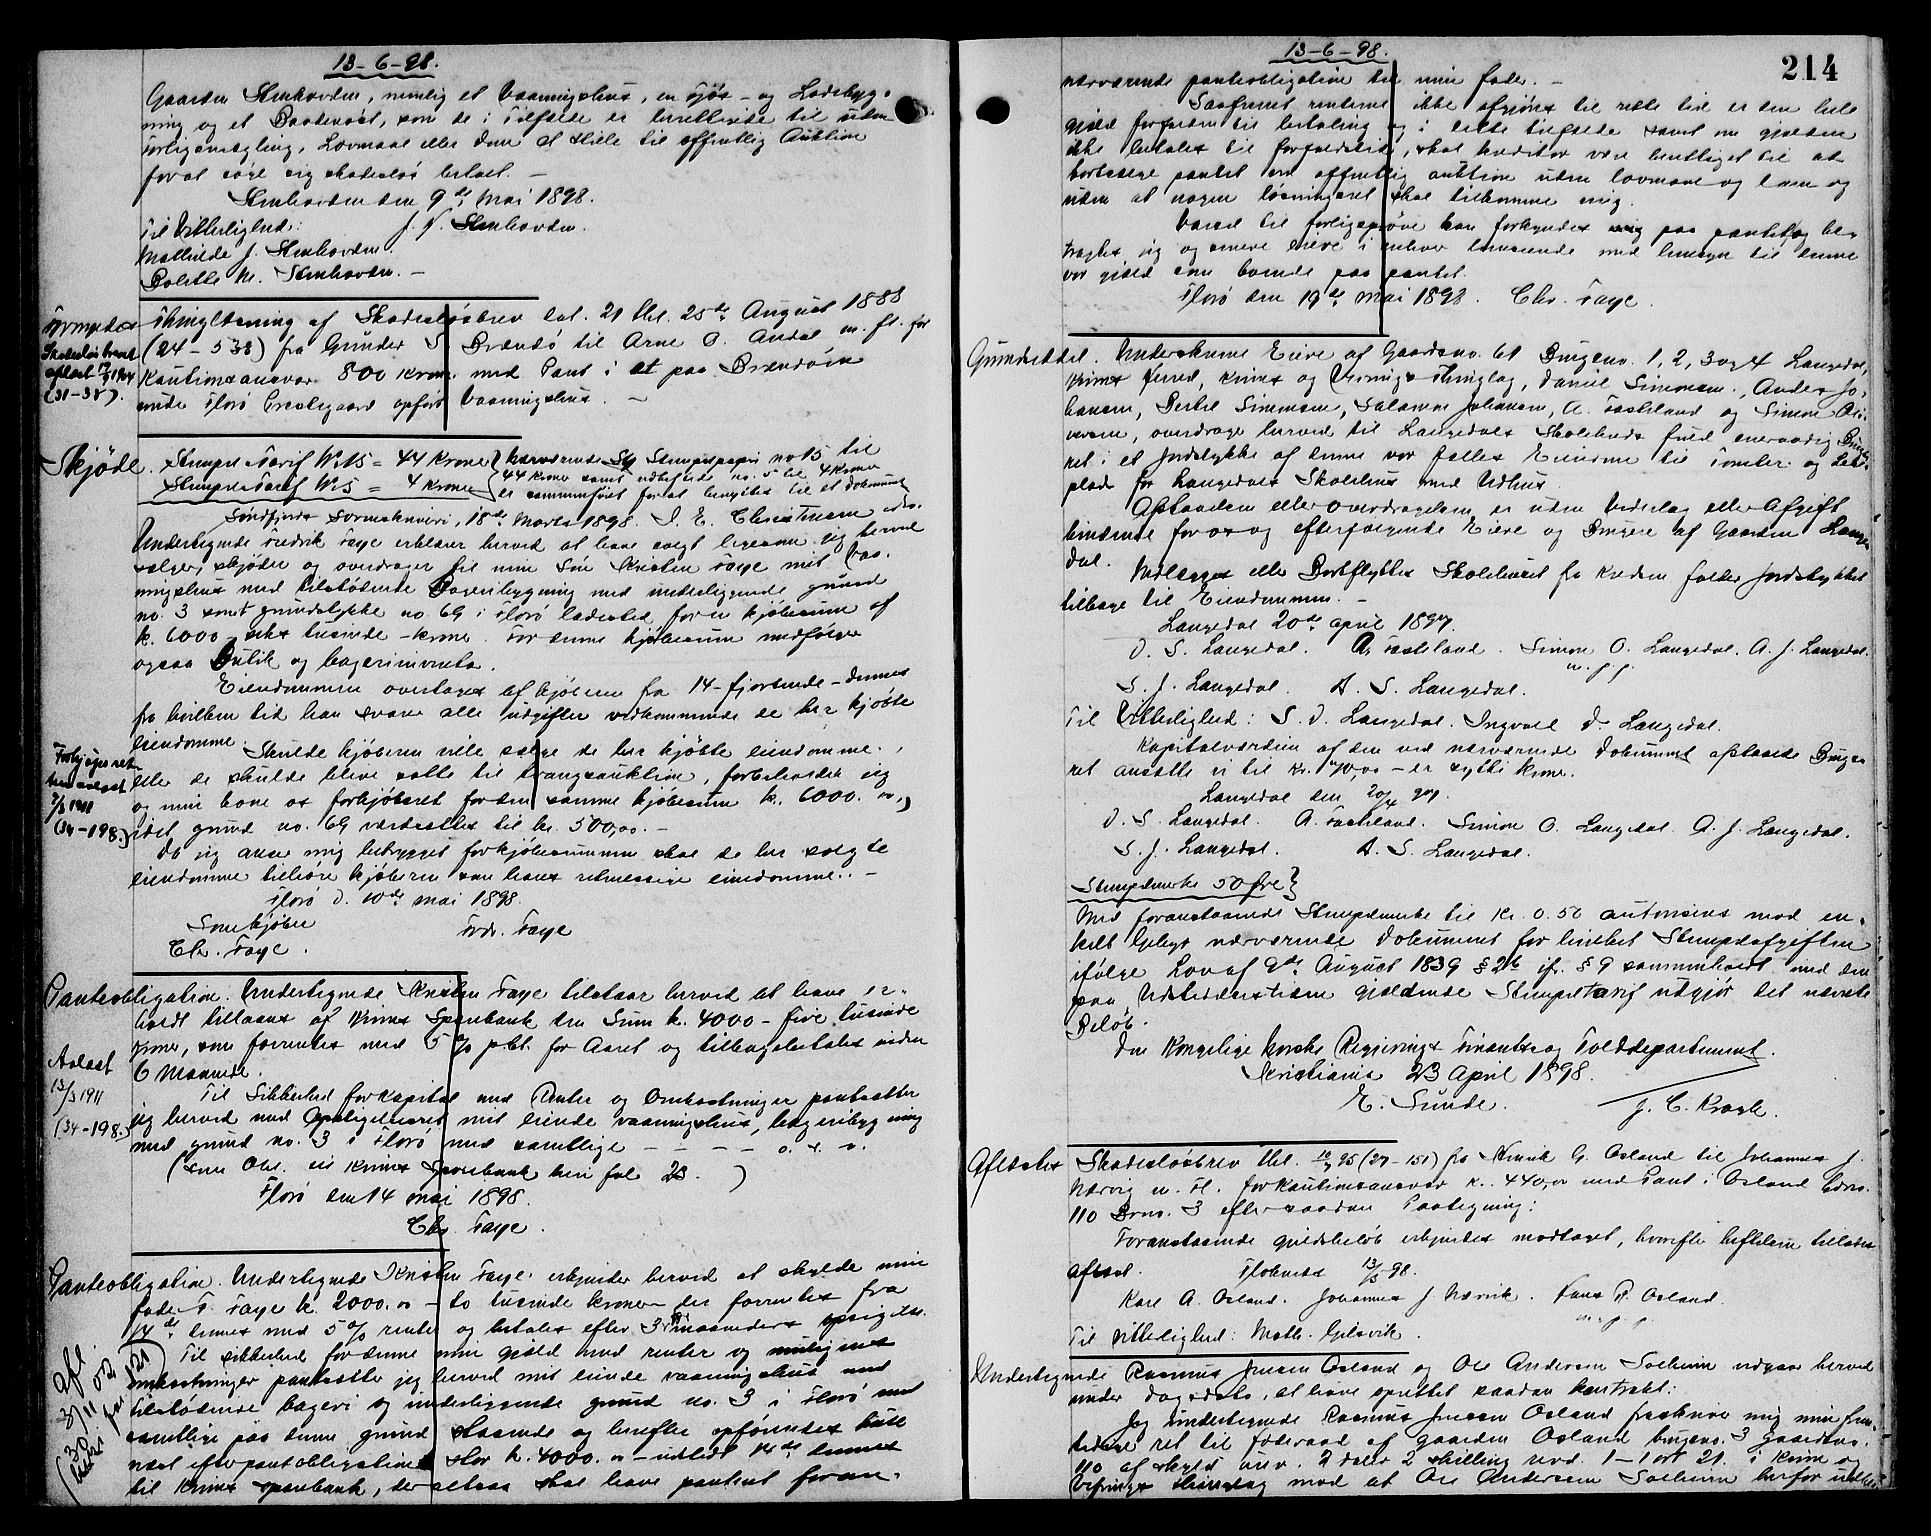 13-6-98.
Gaarden Stenhovden, nemlig et Vaaningshus, en Fjøs- og Ladebyg-
ning og et Baadenøst, som de i Tilfælde er berettigede til uden
Forligsmægling, Lovmaal eller Dom at stille til offentlig Auktion
for at søge sig skadesløs betalt. —
Stenhovden den 9de Mai 1898.
Til Vitterlighed: J. N. Stenhovden.
Mathilde J. Stenhovden.
Bolette M. Stenhovden. —
Thinglæsning af Skadesløsbrev dat. 21 thl. 25de August 1888
(24-538) fra Gunder S Brandsø til Arne O. Andal m. fl. for
Kautionsansvar 800 kroner med Pant i et paa Brandsøen
under Florø Præstegaard opført Vaaningshus. —
Skadesløsbrevet
aflæst
(31-38).
Skjøde. Stempel Tarif No 15 = 44 Kroner } nærværende Stempelpapir no 15 til
Stempel Tarif No 5 = 4 Kroner } 44 Kroner samt vedheftede no. 5 til 4 Kroner
er sammenføiet for at benyttes til et Dokument
Søndfjords Sorenskriveri, 18de Marts 1898. I. E. Christensen
Undertegnede Fredrik Faye erklærer herved at have solgt ligesom jeg herved
sælger, skjøder og overdrager til min Søn Kristen Faye mit Vaa-
ningshus med tilstødende Bageribygning med underliggende grund
no. 3 samt grundstykke no 69 i Florø ladested for en kjøbesum af
k. 6000 - seks tusinde - kroner. For denne kjøbesum medfølger
ogsaa Butik og bageriinventar.
Eiendommen overtages af kjøberen fra 14 - fjortende - dennes
fra hvilken tid han svarer alle udgifter vedkommende de her kjøbte
eiendomme.
Skulde kjøberen ville sælge de her kjøbte eiendomme,
eller de skulde blive satte til tvangsauktion, forbeholder jeg
og min kone os forkjøbsret for den samme kjøbesum k. 6000.00,
idet grund no. 69 værdsættes til kr. 500,00. —
Da jeg anser mig betrygget for kjøbesummen skal de her solgte
eiendomme tilhøre kjøberen som hans retmæssige eiendomme. —
Florø d. 10de mai 1898.
Som kjøber
Chr. Faye. Fredr. Faye
Forkjøpsret
1911
(34-198.)
Panteobligation. Undertegnede Kristen Faye tilstaar herved at have er-
holdt tillaans af Kinns Sparebank den Sum k. 4000 - fire tusinde
Kroner, som forrentes med 5 % pct. for Aaret og tilbagebetales inden
6 Maaneder.
Til Sikkerhed for kapital med Renter og Omkostninger pantsætter
jeg herved med 1ste prioritetsret mit eiende vaaningshus, bageribygning
med grund no. 3 i Florø med samtlige — — — — o. s. v.
(som Obl. til Kinns Sparebank heri fol 23 )
Florø den 14 mai 1898.
Chr. Faye.
Avlæst
13/3 1911
(34-198.)
Panteobligation. Undertegnede Kristen Faye erkjender herved at skylde min
fader F. Faye k. 2000.00 - to tusinde kroner - der forrentes fra
14de dennes med 5 % renter og betales efter 3 maaneders opsigelse.
Til sikkerhed for denne min gjæld med renter og muligens
omkostninger pantsætter jeg herved mit eiende vaaningshus med
tilstødende bageri og underliggende grund no. 3 i Florø med
samtlige paa denne grund staaende og herefter opførendes huse
næst efter pantobligationen stor k. 4000.00 - udstedt 14de dennes
til Kinns sparebank, der altsaa skal have panteret foran.
afl.
13-6-98.
214
nærværende panteobligation til min fader. —
Saafremt renterne ikke afgjøres til rette tid er den hele
gjæld forfalden til betaling og i dette tilfælde samt om gjælden
ikke betales til forfaldstid, skal kreditor være berettiget til at
bortsælge pantet ved offentlig auktion uden lovmaal og dom og
uden at nogen løsningsret skal tilkomme mig.
Varsel til forligsprøve kan forkyndes mig paa pantet og be-
tragtes jeg og senere eiere i enhver henseende med hensyn til denne
vor gjæld som boende paa pantet.
Florø den 19de mai 1898. Chr. Faye.
Grundseddel. Underskrevne Eiere af Gaardsno. 61 Brugsno. 1, 2, 3 og 4 Langedal,
Kinns Herred, Kinns og Vefrings Thinglag, Daniel Simonsen, Anders Jo-
hansen, Bertel Simonsen, Salamon Johansen, A. Fasteland og Simon Oli-
versen, overdrage herved til Langedals Skolekreds fuld eneraadig Brugs-
ret i et Jordstykke af denne vor fælles Eiendom til Tomter og Lege-
plads for Langedals Skolehus med Udhus.
Afstaaelsen eller overdragelsen er uden Vederlag eller Afgift
bindende for os og efterfølgende Eiere og Brugere af Gaarden Lange-
dal. Nedlægges eller Bortflyttes Skolehuset fra Kredsen falder Jordstykket
tilbage til Eiendommen. —
Langedal 20de april 1897.
D. S. Langedal. A. Fasteland. Simon O. Langedal. A. J. Langedal.
m. p. p.
S. J. Langedal. A. S. Langedal.
Til Vitterlighed: S. D. Langedal. Ingvald D. Langedal.
Kapitalværdien af den ved nærværende Dokument afstaaede Brugs-
ret ansætte vi til kr. 70,00 - er sytti kroner.
Langedal den 20/4 97.
D. S. Langedal. A. Fasteland. Simon O. Langedal. A. J. Langedal.
S. J. Langedal. A. S. Langedal.
Stempelmerke 50 Øre}
Med foranstaaende Stempelmerke til Kr. 0.50 autoriseres mod en-
kelt Gebyr nærværende Dokument for hvilket Stempelafgiften
ifølge Lov af 9de August 1839 § 2b jfr. § 9 sammenholdt med den
paa Udstedelsestiden gjældende Stempeltarif udgjør det nævnte
Beløb.
Den Kongelige Norske Regjerings Finants og Tolddepartement.
Kristiania 23 April 1898.
E. Sunde. J. C. Krogh.
Aflæstes Skadesløsbrev thl. 95 (27-151) fra Henrik G. Osland til Johannes J.
Nærvig m. fl. for Kautionsansvar k. 440,00 med Pant i Osland Gdsno.
110 Brno. 3 efter saadan Paategning:
Foranstaaende gjeldsbeløb erkjendes modtaget, hvorefter heftelsen tillades
aflæst. Flokenes 13/5 98.
Karl A. Osland. Johannes J Nærvik. Hans R. Osland.
m. p. p.
Til Vitterlighed: Math. Gilsvik.
Undertegnede Rasmus Jensen Osland og Ole Andersen Solheim udgaar herved
under Dags dato, at have oprettet saadan kontrakt:
Jeg undertegnede Rasmus Jensen Osland fraskriver mig min frem-
tidige ret til føderaad af gaarden Osland brugsno. 3 gaardsno.
110 af skyld urev. 2 daler 2 skilling revd. 1-1 ort 21. i Kinn og
Vefrings thinglag mod at Ole Andersen Solheim herfor udbe-